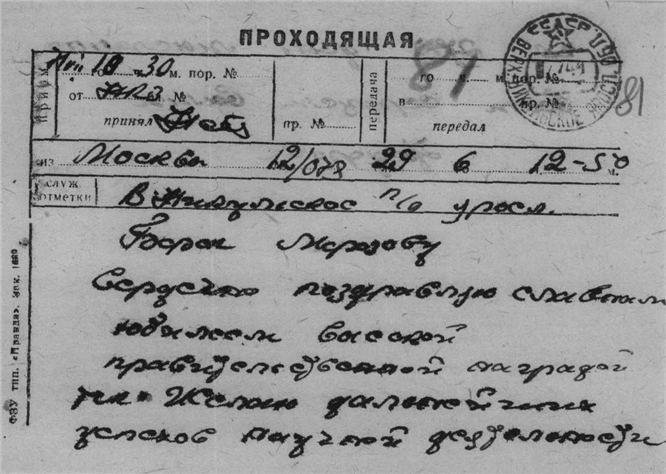 ПРОХОДЯЩАЯ
81
Прием
10 ч. 30 м. пор. №
от №
принял
пр. №
передача
го ч. м. пор. №
в пр. №
передал
81
из Москвы 12/078 29 6 12-50
служ. отметки
В п/о Яросл.
Борок Морозову
Сердечно поздравляю славным
юбилеем высокой
правительственной наградой
тчк Желаю дальнейших
успехов научной деятельности
ФЗУ тип. «Правда». Зак. 1680